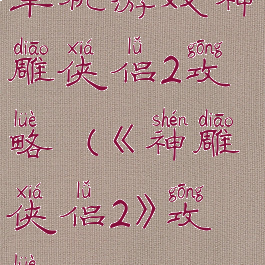 单机游戏神
diāo xiá lǚ gōng
雕侠侣2攻
lüè shén diāo
略（《神雕
xiá lǚ gōng
侠侣2》攻
lüè